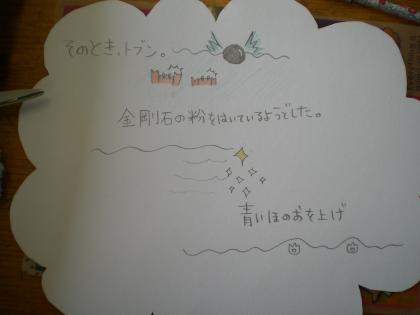 そのとき、トブン。
金剛石の粉をはいているようでした。
青いほのおを上げ